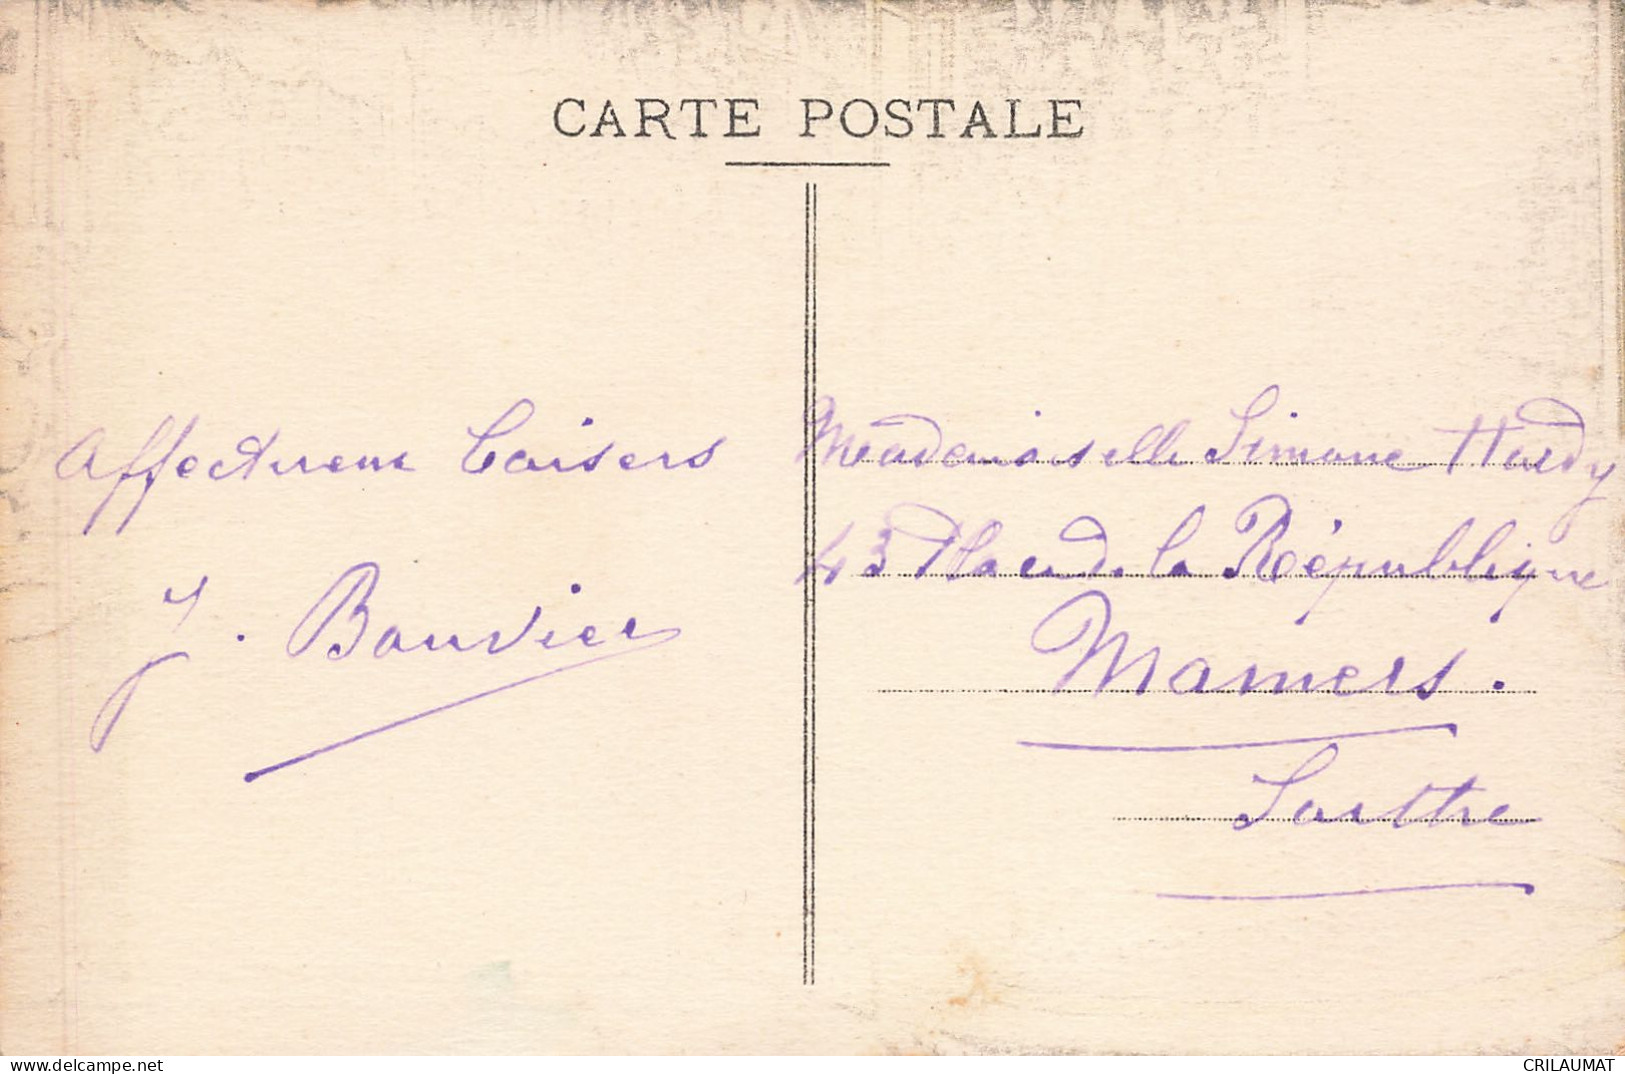 CARTE POSTALE
Affectueux baisers
J. Bouvier
Mademoiselle Simone Hardy
43 Place de la République
Mamers.
Sarthe
www.delcampe.net
CRILAUMAT